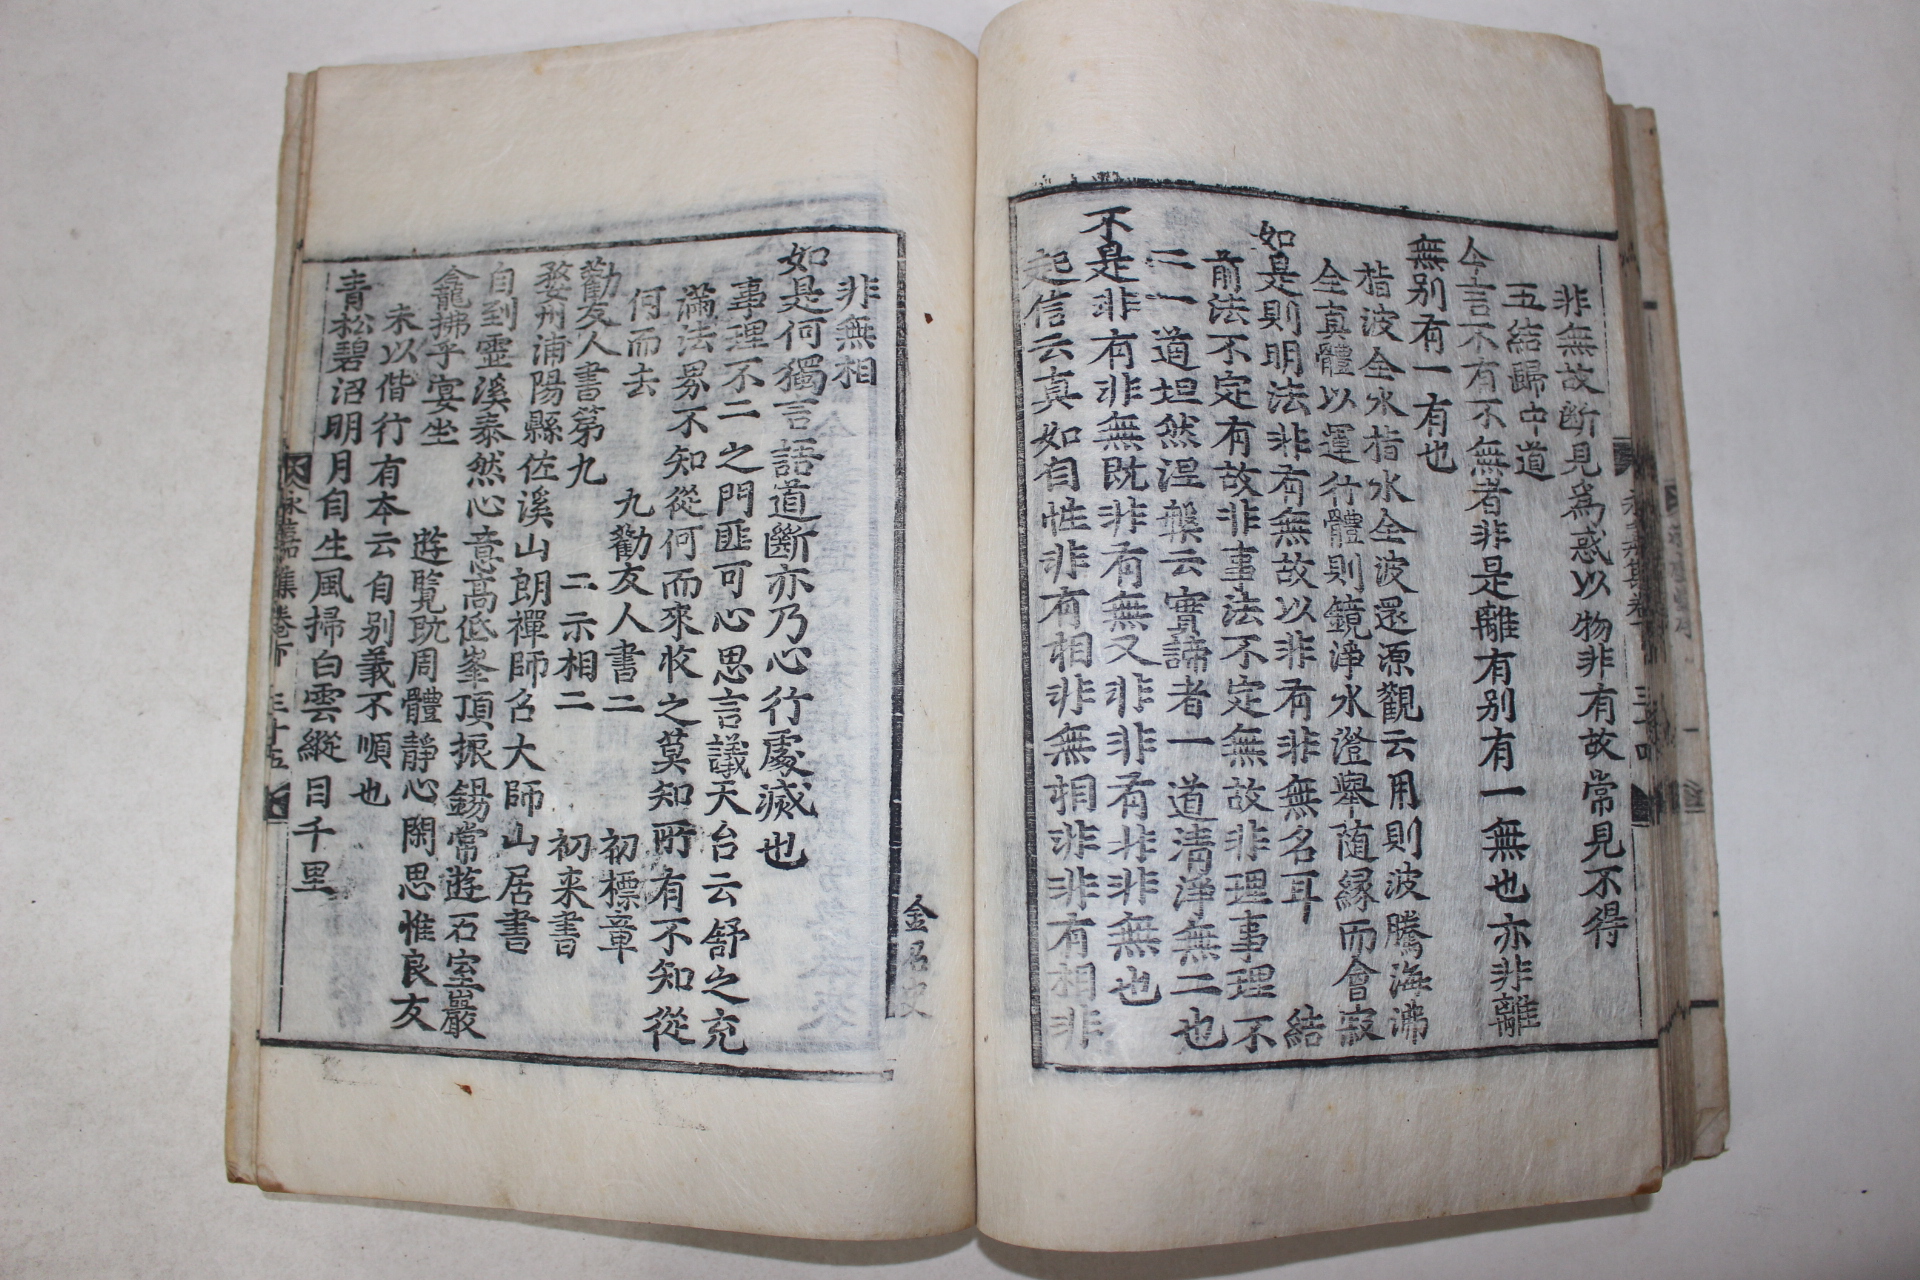 非無故斷見爲惑以物非有故常見不得
五結歸中道
今言不有不無者非是離有別有一無也亦非離
無別有一有也
楷波全水指水全波還源觀云用則波騰海沸
全真體以運行體則鏡淨水澄舉随緣而會寂
如是則明法非有無故以非有非無名耳 結
前法不定有故非事法不定無故非理事理不
二一道坦然涅槃云實諦者一道清淨無二也
不是非有非無既非有無又非非有非非無也
起信云真如自性非有相非無相非非有相非
非無相
如是何獨言語道斷亦乃心行處滅也
事理不二之門匪可心思言議天台云舒之充
滿法界不知從何而來收之莫知所有不知從
何而去 九勸友人書二 初標章
勸友人書第九 二示相二 初来書
婺州浦陽縣佐溪山朗禪師名大師山居書
自到靈溪泰然心意高低峯頂振錫常遊石室巖
龕拂乎宴坐 遊覧既周體靜心閑思惟良友
未以偕行有本云自别義不順也
青松碧沼明月自生風掃白雲縱目千里
永嘉集卷下 三十五
金名史